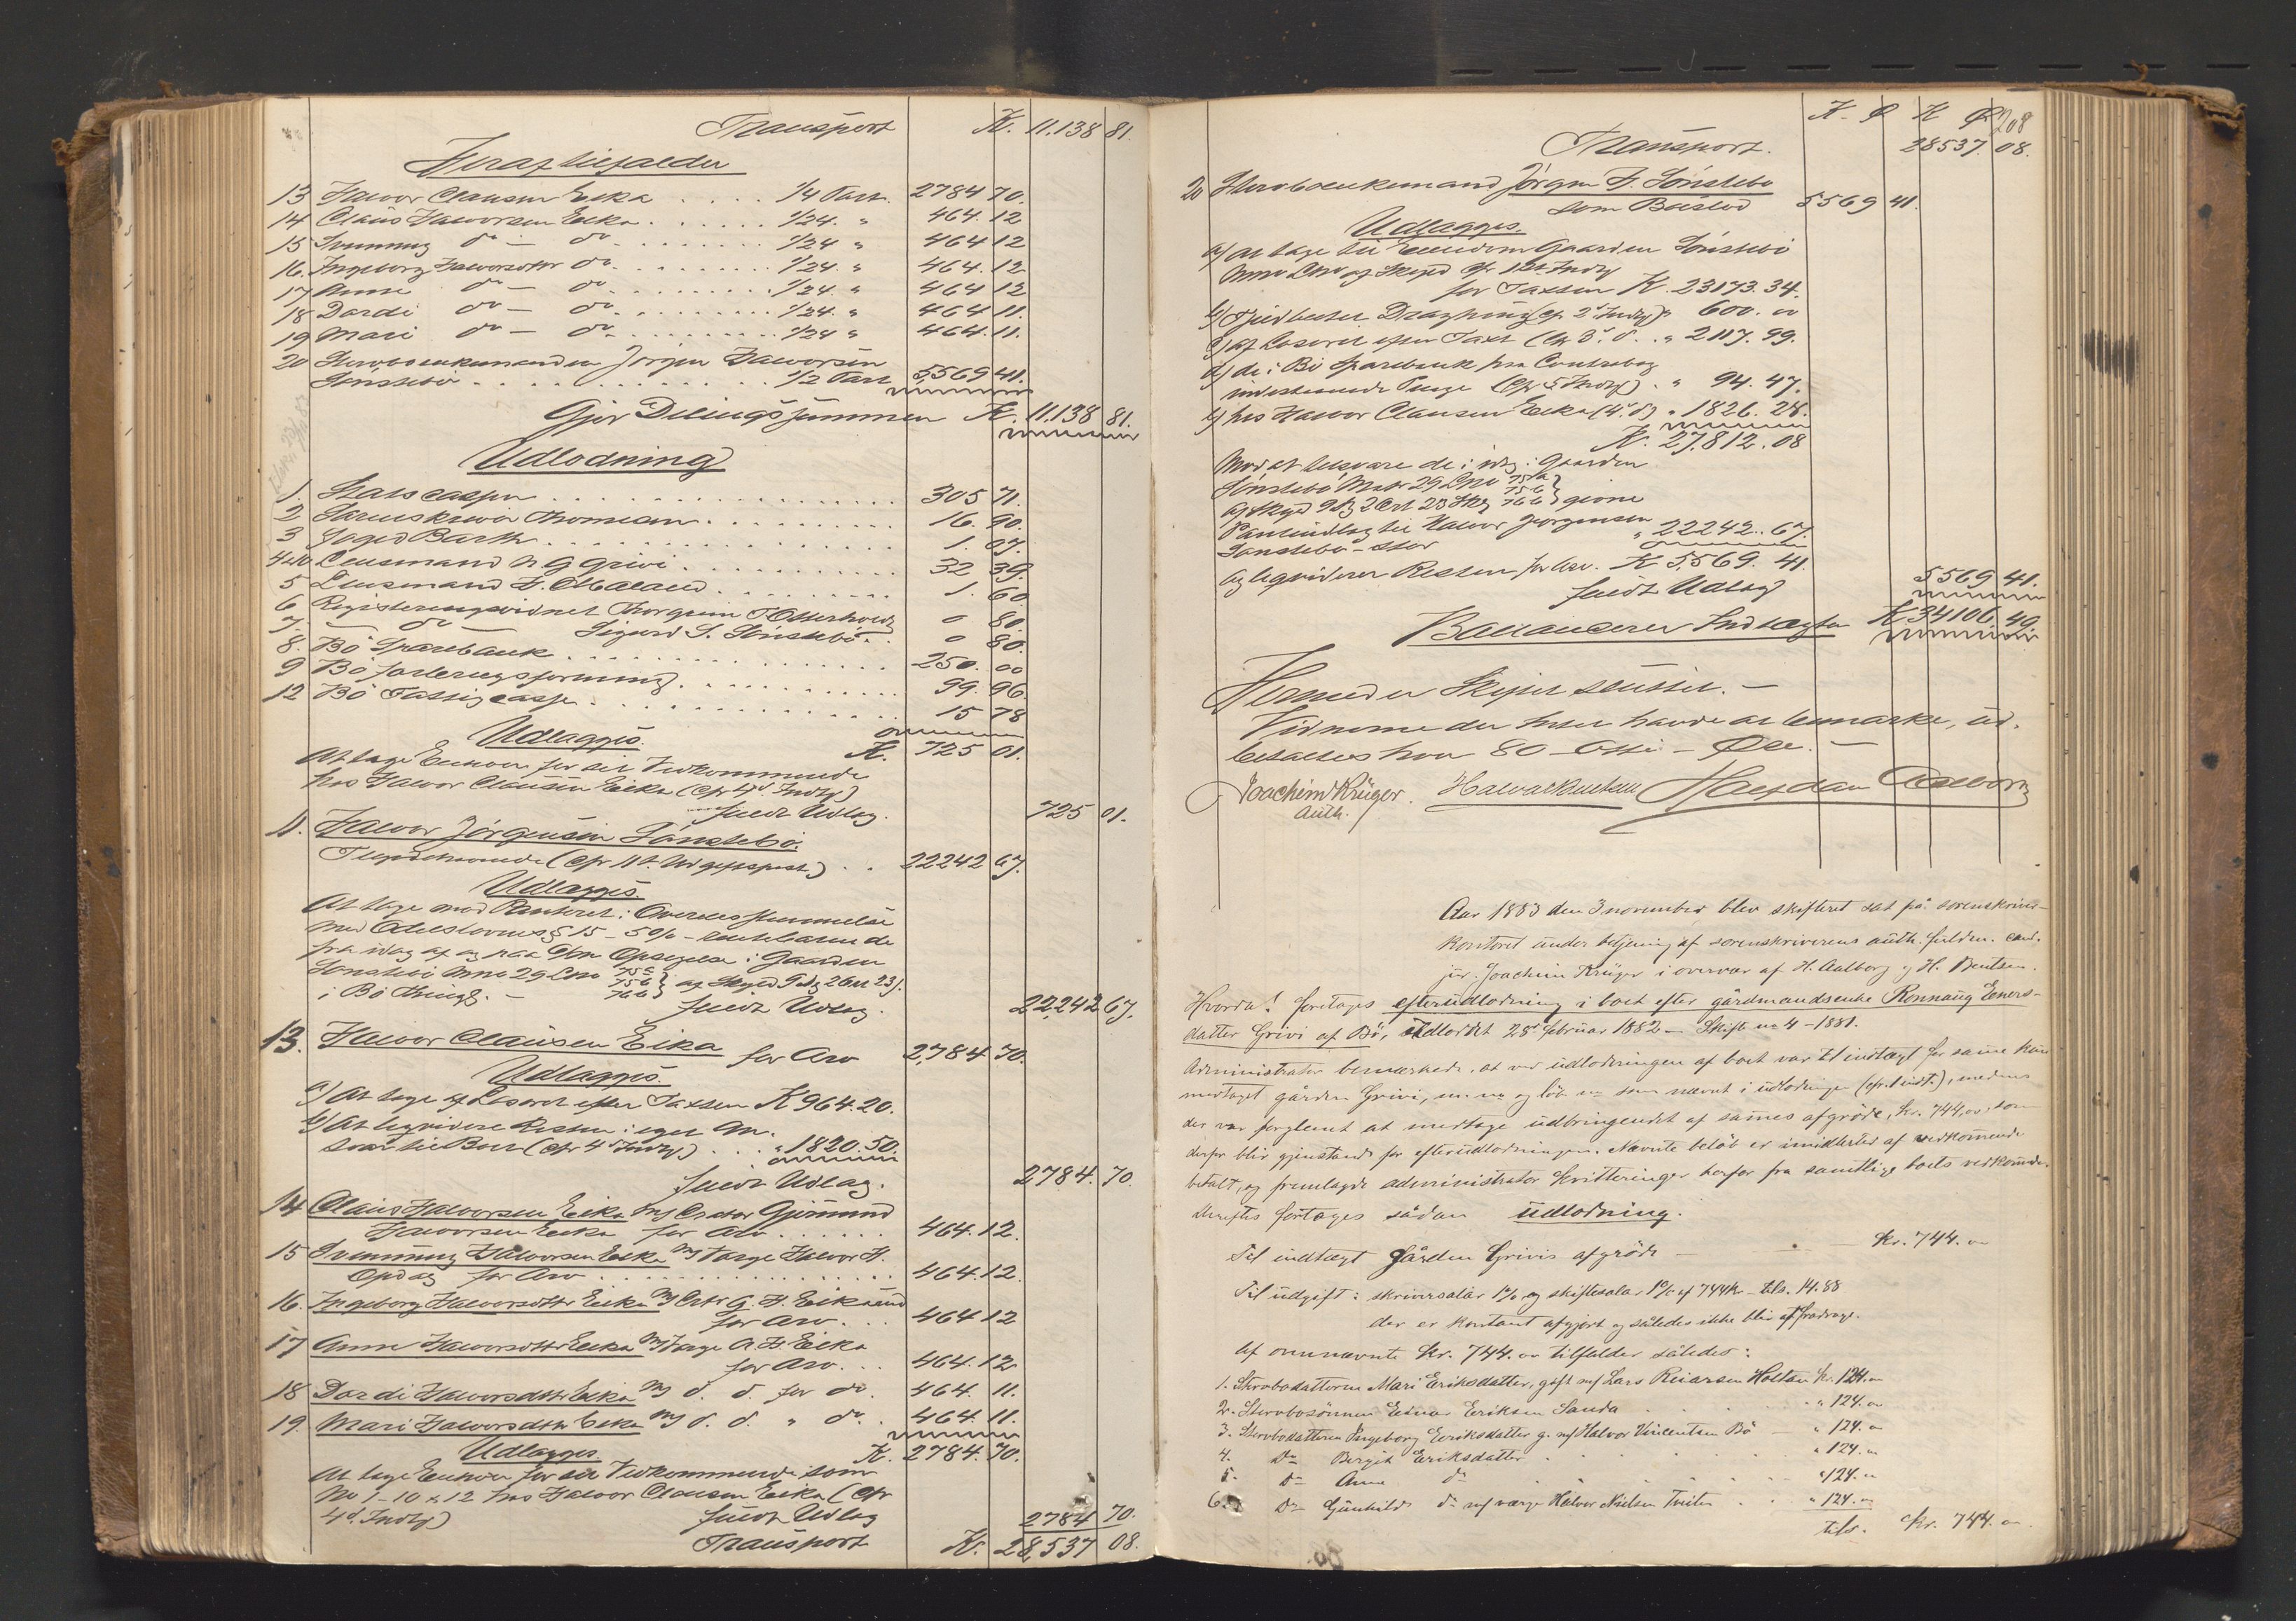 Transport K. 11.138 81.
Heraf tilfalder
13 Halvor Clausen Eika .... 1/4 Part. 2784 70.
14 Claus Halvorsen Eika ..... 1/24. " 464. 12
15 Do - do ........ 1/24 " 464 12
16. Ingeborg Halvorsdttr do ....... 1/24. " 464. 12
17 Anne do - do ........ 1/24. " 464 12
18 Dardi do - do ........ 1/24. " 464 11.
19 Mari do - do ........ 1/24 " 464. 11.
20 Stervboenkemanden Jørgen Halvorsen
Sønstebø .............. 1/2 Part 5,569 41.
Gjør Delingssummen K. 11.138 81.
Udlodning
1. Statscassen ................ 305 71.
2 Sorenskriver Thomesen .......... 16. 90.
3 Foged Barth ................ 1. 07.
4 & 10 Lensmand N G Grivi ........... 32 39.
5 Lensmand F. Maland .......... 1. 60
6 Registeringsvidnet Thorgrim T Otterholt 0 80.
7. - do - Sigurd S. Sønstebø .. 0 80.
8. Bø Sparebank ................ 250. 00
9 Bø forlurgsforening ............ 99. 96.
12 Bø Fattigcasse ................ 15 78
Udlægges. K. 725 01.
At tage Enhver for sit Vedkommende
hos Halvor Clausen Eika (cfr 4d Indtg)
fuldt Udlæg. 725 01.
11. Halvor Jørgensen Sønstebø.
Tilgodehavende (cfr 11t. Udgiftspost) .. 22242 67.
Udlægges.
At tage mod Panteret i Overensstemmelse
med Odelslovens § 15 - 5 0/0 - rentebærende
fra idag af og paa Opsigelse i Gaarden
Sønstebø Mno 29 Lno 75a 75b 76b af Skyld 9 d 2 ort 23 s.
i Bø thingl. - fuldt Udlæg. 22,242 67.
13. Halvor Clausen Eika for Arv 2,784 70.
Udlægges.
a) At tage af Løsøret efter Taxten K 964. 20.
b) At liqvidere Resten i egen An-
svar til Boet (cfr 4d Indtg) ... " 1820. 50.
fuldt Udlæg. 2784. 70.
14 Claus Halvorsen Eika m/ Curator Gjermund
Halvorsen Eika for Arv ...... 464. 12.
15 Halvorsen Eika m/ Værge Halvor H.
Opdag for Arv ................ 464. 12.
16. Ingeborg Halvorsdttr Eika m/ Crtr G. H. Eikaund
for Arv ... 464 12
17 Anne Halvorsdttr Eika m/ Værge A H Eika
for Arv ... 464. 12
18 Dardi Halvorsdttr Eika m/ d. d. for do. 464. 11.
19. Mari Halvorsdttr Eika m/ d. d. " do. . 464. 11.
Udlægges. K. 2784. 70.
At tage Enhver for sit Vedkommende som
No 1-10 & 12 hos Halvor Clausen Eika (cfr
4d. Indtg) fuldt Udlæg 2784 70.
Transport K. 28,537 08.
K. Ø K Ø 208
Transport. 28537. 08.
20 Stervboenkemand Jørgen H. Sønstebø
som Boslod 5569 41.
Udlægges.
a) At tage til Eiendom Gaarden Sønstebø
Mno Lno og Skyld cfr 1st Indtg
for Taxten K. 23173. 34.
b) Fjeldbeitet (cfr 2d Indtg) " 600. 00
c) af Løsøret efter Taxt (cfr 3d. d. . " 2117. 99.
d) de i Bø Sparebank paa Contrabog
indestaaende Penge (cfr 5 Indtg) . " 94. 47.
e) hos Halvor Clausen Eika (4. d) " 1826. 28.
K. 27.812. 08
Mod at tilsvare de i Gaarden
Sønstebø Matr 29 Lno 75a 75b 76b
af Skyld 9 d 2 Ort 23 Sk givne
Panteudlæg til Halvor Jørgensen
Sønstebø - stor " 22242. 67.
og liqviderer Resten for Arv. K 5,569. 41.
fuldt Udlæg 5569 41.
Ballancerer Indtægten K. 34106. 49.
Hermed er Skiftet sluttet. -
Vidnerne der intet havde at bemærke, ud-
betaltes hver 80 - Otti - Øre. -
Joachim Krüger. Halvor Knutsen
Auth.
Aar 1883 den 3 november blev skifteret sat på sorenskriver-
kontoret under betjening af sorenskriverens auth. fuldm. cand.
jur. Joachim Krüger i overvær af H. Aalborg og H. Bentsen.
Hvorda! foretoges efterudlodning i boet efter gårdmandsenke Rønnaug Einers-
datter Grivi af Bø, udloddet 28de februar 1882 - Skifte no 4 - 1881.
Administrator bemærkede, at ved udlodningen af boet var til indtægt for samme kun
medtaget gården Grivi, m. no og løb. no som nævnt i udlodningen (cfr. 1 indt.), medens
der var forglemt at medtage udbringendet af sammes afgrøde, kr. 744,00, som
derfor blir gjenstand for efterudlodningen. Nævnte beløb er imidlertid af vedkommende
betalt, og fremlagde administrator kvitteringer herfor fra samtlige boets vedkommende.
Derefter fortoges sådan udlodning.
Til indtægt Gården Grivis afgrøde - - kr. 744. 00
Til udgift: skriversalær 1% og skiftesalær 1% af 744 kr - tils. 14.88
der er kontant afgjort og således ikke blir at fradrage.
Af ovennævnte kr. 744. 00 tilfalder således:
1. Stervbodatteren Mari Eriksdatter, gift m/ Lars Reiersen Holtan kr. 124. 00
2. Stervbosønnen Einar Eriksen Sanda ...... " 124. 00
3. Stervbodatteren Ingeborg Eriksdatter g. m/ Halvor Vincentsen Bø " 124. 00
4. Do Bergit Eriksdatter ...... " 124. 00
5. Do Anne do ...... " 124. 00
6. Do Gunhild do m/ værge Halvor Nielsen Tveiten .. " 124. 00
tils. kr. 744. 00